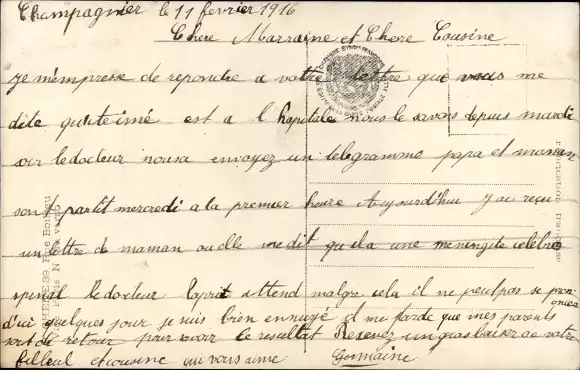 Champagnier le 11 fevrier 1916
Chere Marraine et Chere Cousine
je m'empresse de repondre a votre lettre que vous me
dite qu'etiené est a l hopitale nous le savons depuis mardi
soir le docteur nous a envoyez un telegramme papa et maman
son partit mercredi a la premier heure Aujourd'hui j'ai reçu
un lettre de maman ou elle me dit qu'il a une meningite celebro
spinal le docteur l'esprit attend malgre cela il ne peut pas se pronocica
d'ici quelques jour je suis bien ennuyé il me tarde que mes parents
soit de retour pour savoir ce resultat Recevez un gros baiser de votre
filleul et cousine qui vous aime Germaine
Fabrication française